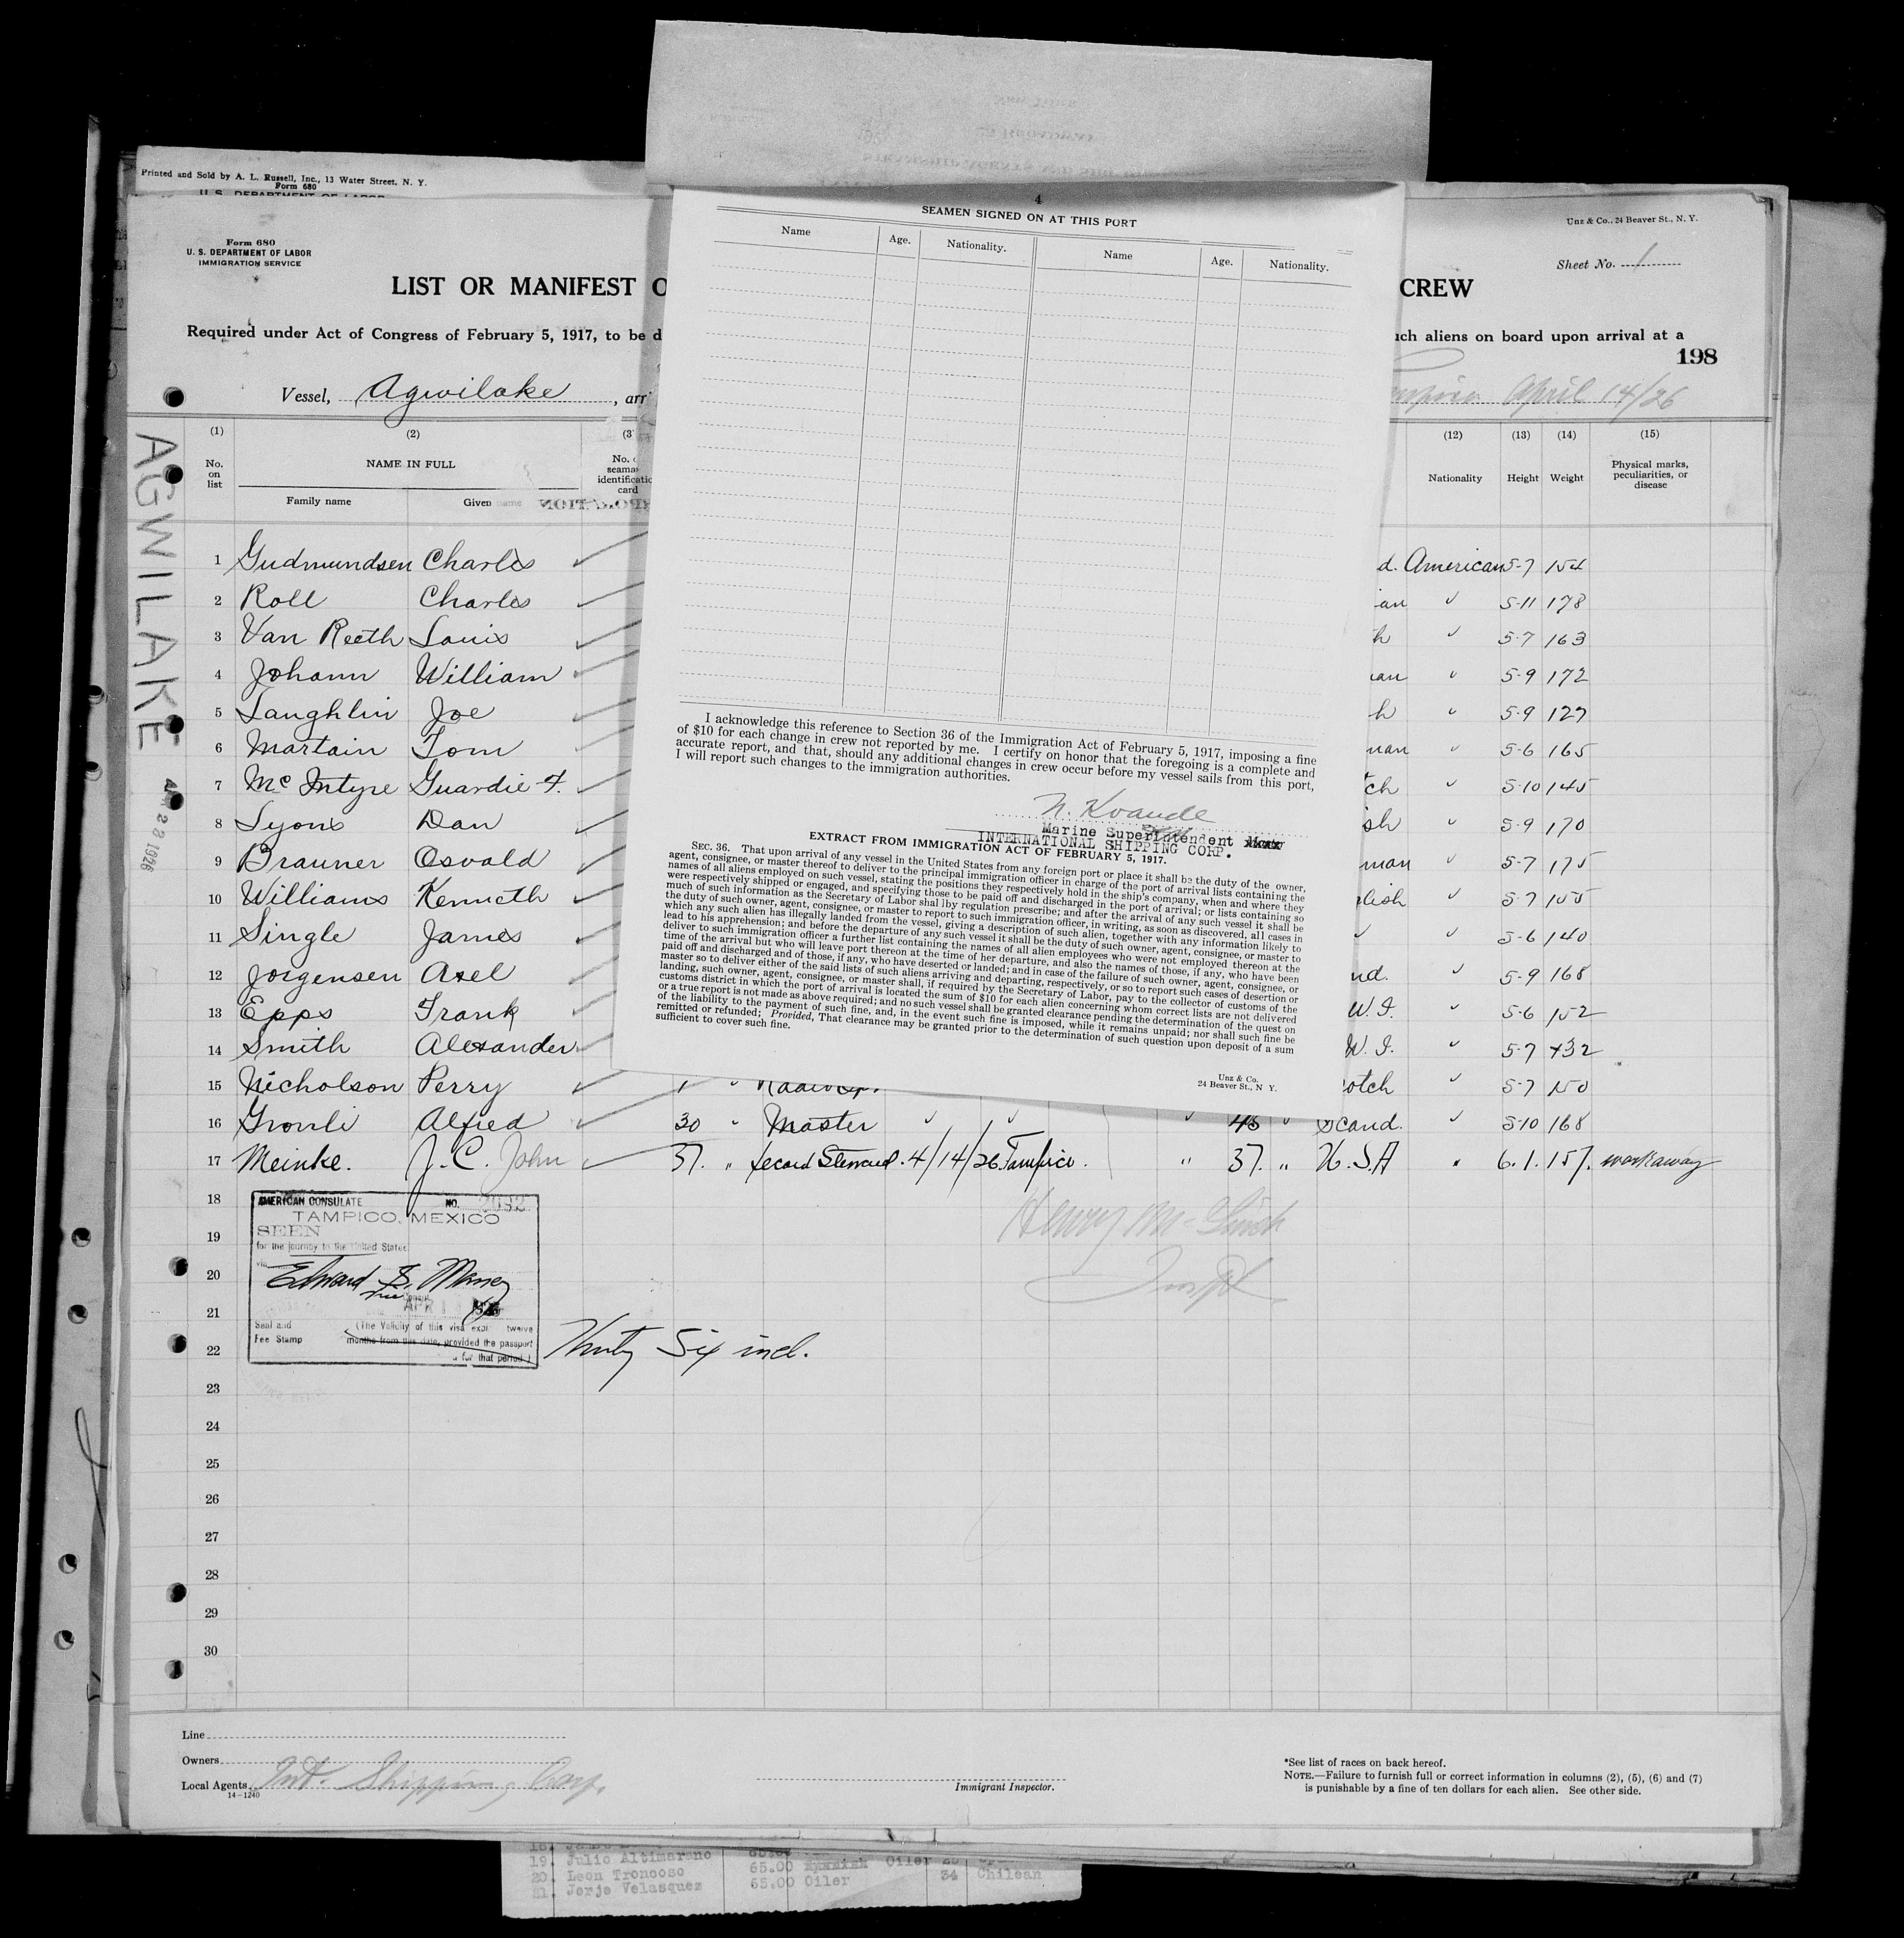 Printed and Sold by A. L. Russell, Inc., 13 Water Street, N. Y.
Form 680
U. S. DEPARTMENT OF LABOR
Form 680
U. S. DEPARTMENT OF LABOR
IMMIGRATION SERVICE
Unz & Co., 24 Beaver St., N. Y.
Sheet No. 1
LIST OR MANIFEST O
CREW
Required under Act of Congress of February 5, 1917, to be d
uch aliens on board upon arrival at a
198
Vessel, Agwilake , arr
April 14/26
AGWILAKE
(1) (2) (3 (12) (13) (14) (15)
No. on list
NAME IN FULL
Family name Given name
No. seama identificatio card
Nationality Height Weight Physical marks, peculiarities, or disease
1 Gudmundsen Charles d. American 5-7 154
2 Roll Charles ian " 5-11 178
3 Van Reeth Louis h " 5-7 163
4 Johann William ian " 5-9 172
5 Laughlin Joe h " 5-9 127
6 Martain Tom man " 5-6 165
7 McIntyre Guardie F. ch " 5-10 145
8 Lyons Dan ish " 5-9 170
9 Brauner Osvald man " 5-7 175
10 Williams Kenneth glish " 5-7 155
11 Single James " " 5-6 140
12 Jorgensen Axel nd. " 5-9 168
13 Epps Frank W. I. " 5-6 152
14 Smith Alexander W. I. " 5-7 132
15 Nicholson Perry otch " 5-7 150
16 Gronli Alfred 30 " Master " " " 45 " Scand. " 5-10 168
17 Meinke. J. C. John 37. " Second Steward. 4/14/26 Tampico. " 37. " U.S.A " 6.1. 157. workaway
18
19
20
21
22
23
24
25
26
27
28
29
30
AMERICAN CONSULATE NO. 2692
TAMPICO, MEXICO
SEEN
for the journey to the United States
via
Edward S. Maney
Vice Consul
APR 1 1926
Seal and Fee Stamp
(The Validity of this visa expi twelve
months from this date, provided the passport
for that period.)
Thirty Six incl.
Henry
4
SEAMEN SIGNED ON AT THIS PORT
Name Age. Nationality. Name Age. Nationality.
I acknowledge this reference to Section 36 of the Immigration Act of February 5, 1917, imposing a fine
of $10 for each change in crew not reported by me. I certify on honor that the foregoing is a complete and
accurate report, and that, should any additional changes in crew occur before my vessel sails from this port,
I will report such changes to the immigration authorities.
N. Kvande
Marine Superintendent
INTERNATIONAL SHIPPING CORP.
EXTRACT FROM IMMIGRATION ACT OF FEBRUARY 5, 1917.
SEC. 36. That upon arrival of any vessel in the United States from any foreign port or place it shall be the duty of the owner,
agent, consignee, or master thereof to deliver to the principal immigration officer in charge of the port of arrival lists containing the
names of all aliens employed on such vessel, stating the positions they respectively hold in the ship's company, when and where they
were respectively shipped or engaged, and specifying those to be paid off and discharged in the port of arrival; or lists containing so
much of such information as the Secretary of Labor shal lby regulation prescribe; and after the arrival of any such vessel it shall be
the duty of such owner, agent, consignee, or master to report to such immigration officer, in writing, as soon as discovered, all cases in
which any such alien has illegally landed from the vessel, giving a description of such alien, together with any information likely to
lead to his apprehension; and before the departure of any such vessel it shall be the duty of such owner, agent, consignee, or master to
deliver to such immigration officer a further list containing the names of all alien employees who were not employed thereon at the
time of the arrival but who will leave port thereon at the time of her departure, and also the names of those, if any, who have been
paid off and discharged and of those, if any, who have deserted or landed; and in case of the failure of such owner, agent, consignee, or
master so to deliver either of the said lists of such aliens arriving and departing, respectively, or so to report such cases of desertion or
landing, such owner, agent, consignee, or master, shall, if required by the Secretary of Labor, pay to the collector of customs of the
customs district in which the port of arrival is located the sum of $10 for each alien concerning whom correct lists are not delivered
or a true report is not made as above required; and no such vessel shall be granted clearance pending the determination of the quest on
of the liability to the payment of such fine, and, in the event such fine is imposed, while it remains unpaid; nor shall such fine be
remitted or refunded; Provided, That clearance may be granted prior to the determination of such question upon deposit of a sum
sufficient to cover such fine.
Unz & Co.
24 Beaver St., N Y.
Line
Owners
Local Agents Int. Shipping Corp.
14—1240
Immigrant Inspector.
*See list of races on back hereof.
NOTE.—Failure to furnish full or correct information in columns (2), (5), (6) and (7)
is punishable by a fine of ten dollars for each alien. See other side.
19. Julio Altimarano Oiler
20. Leon Troncoso 65.00 Oiler 34 Chilean
21. Jorje Velasquez 65.00